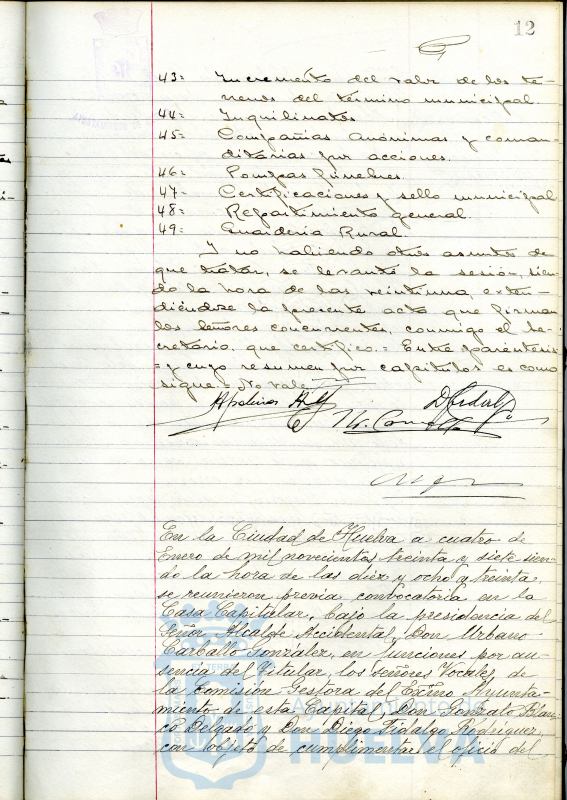 12
43= Incremento del valor de los te-
rrenos del término municipal.
44= Inquilinatos
45= Compañias anónimas y coman-
ditarias por acciones.
46= Pompas fúnebres.
47= Certificaciones y sello municipal
48= Repartimiento general
49= Guardería Rural.
Y no habiendo otros asuntos de
que tratar, se levantó la sesión, sien-
do la hora de las veintiuna, exten-
diéndose la presente acta que firman
los señores concurrentes, conmigo el Se-
cretario, que certifico.= Entre paréntesis
= y cuyo resumen por capítulos es como
sigue.= No vale
En la Ciudad de Huelva a cuatro de
Enero de mil novecientos treinta y siete sien-
do la hora de las diez y ocho y treinta,
se reunieron previa convocatoria en la
Casa Capitular, bajo la presidencia del
Señor Alcalde Accidental, Don Urbano
Carballo González, en funciones por au-
sencia del Titular, los señores Vocales de
la Comisión Gestora del Excmo Ayunta-
miento de esta Capital, Don Gonzalo Blan-
co Delgado y Don Diego Fidalgo Rodríguez,
con objeto de cumplimentar el oficio del
HUELVA